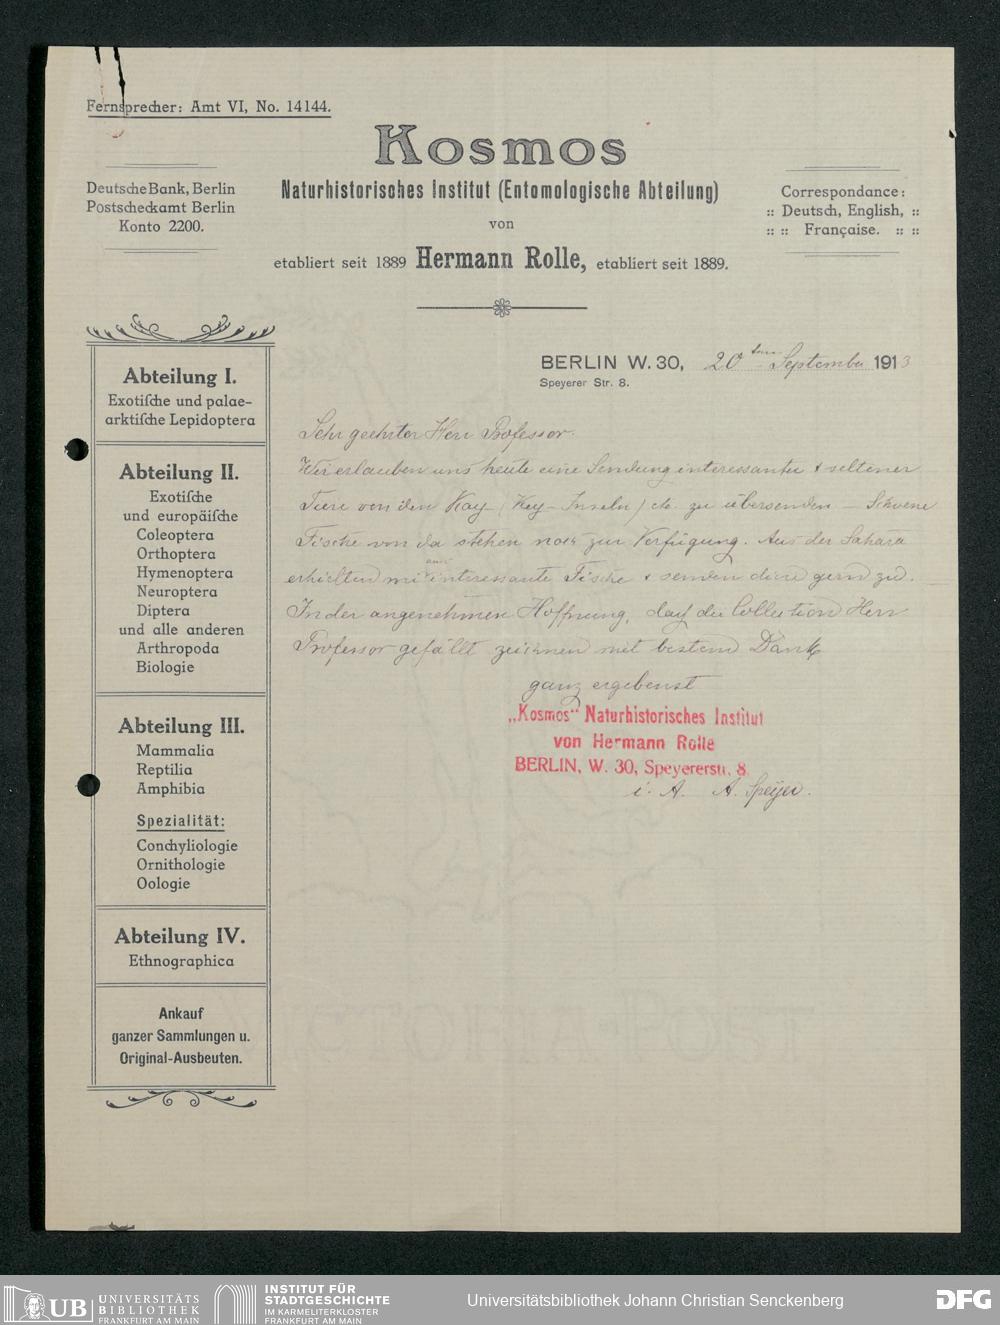 Fernsprecher: Amt VI, No. 14144.
Kosmos
Naturhistorisches Institut (Entomologische Abteilung)
von
etabliert seit 1889 Hermann Rolle, etabliert seit 1889.
Deutsche Bank, Berlin
Postscheckamt Berlin
Konto 2200.
Correspondance:
:: Deutsch, English, ::
:: :: Française. :: ::
BERLIN W. 30, 20ten September 1913
Speyerer Str. 8.
Abteilung I.
Exotische und palae-
arktische Lepidoptera
Abteilung II.
Exotische
und europäische
Coleoptera
Orthoptera
Hymenoptera
Neuroptera
Diptera
und alle anderen
Arthropoda
Biologie
Abteilung III.
Mammalia
Reptilia
Amphibia
Spezialität:
Conchyliologie
Ornithologie
Oologie
Abteilung IV.
Ethnographica
Ankauf
ganzer Sammlungen u.
Original-Ausbeuten.
Sehr geehrter Herr Professor.
Wir erlauben uns heute eine Sendung interessanter & seltener
Tiere von den Kay (Key-Inseln) etc. zu übersenden – Schoene
Fische von da stehen noch zur Verfügung. Aus der Sahara
erhielten wir auch interessante Fische & senden diese gern zu.
In der angenehmen Hoffnung, dass die Collection Herr
Professor gefällt zeichnen mit bestem Dank
ganz ergebenst
„Kosmos" Naturhistorisches Institut
von Hermann Rolle
BERLIN, W. 30, Speyererstr. 8.
i. A. A. Speyer.
UB UNIVERSITÄTS
BIBLIOTHEK
FRANKFURT AM MAIN
INSTITUT FÜR
STADTGESCHICHTE
IM KARMELITERKLOSTER
FRANKFURT AM MAIN
Universitätsbibliothek Johann Christian Senckenberg
DFG